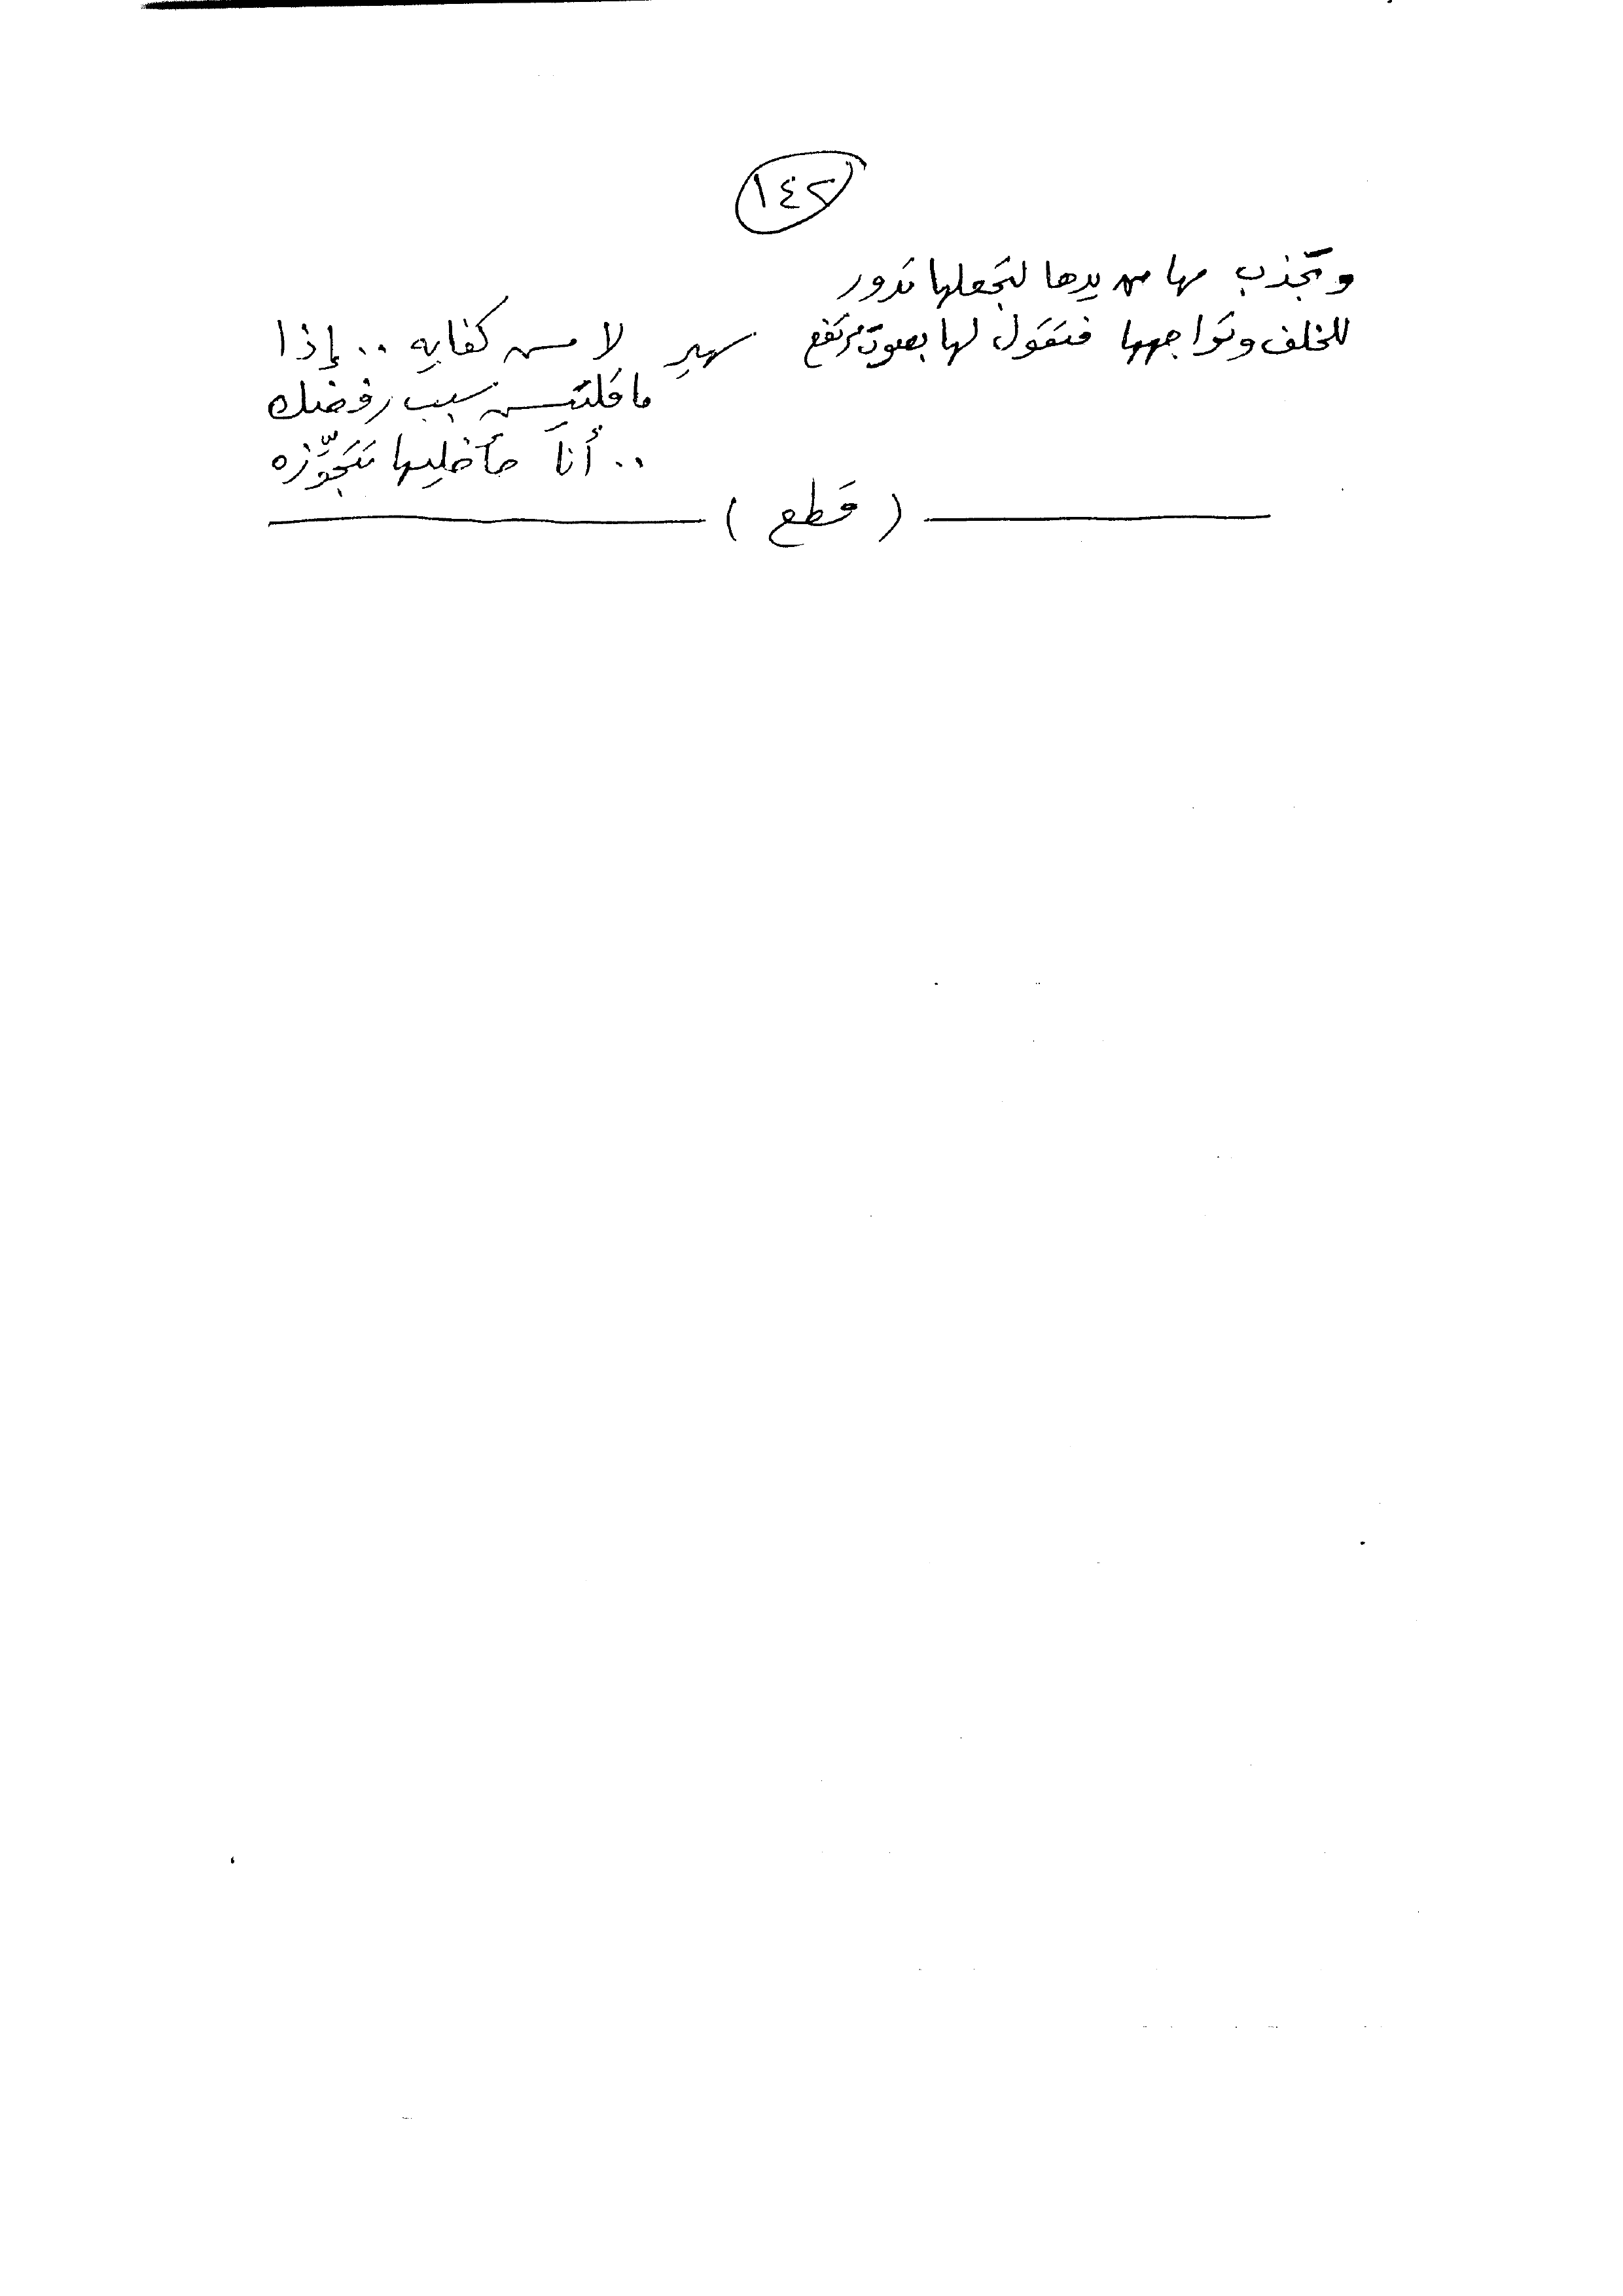 ١٤٢
وتجذب مها من يدها لتجعلها تدور
للخلف وتواجهها فتقول لها بصوت مرتفع سهير لا مش كفايه .. إذا
ما قلتيش سبب رفضك
.. أنا حأخليها تتجوّزه
( قطع )